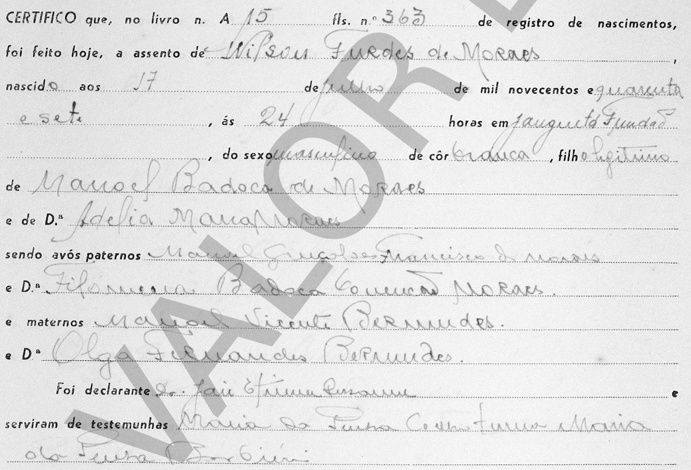 CERTIFICO que, no livro n. A 15 fls. n.º 363 de registro de nascimentos,
foi feito hoje, a assento de Wilson Guedes de Moraes,
nascido aos 17 de de mil novecentos e quarenta
e sete, ás 24 horas em
, do sexo masculino de côr branca, filho legitimo
de Manoel Badoca de Moraes
e de D.ª Adelia Moraes
sendo avós paternos Manoel Francisco de Moraes
e D.ª Filomena Badoca Moraes.
e maternos Manoel Vicente Bermudes.
e D.ª Olga Fernandes Bermudes.
Foi declarante e
serviram de testemunhas Maria da Maria
da
VALOR